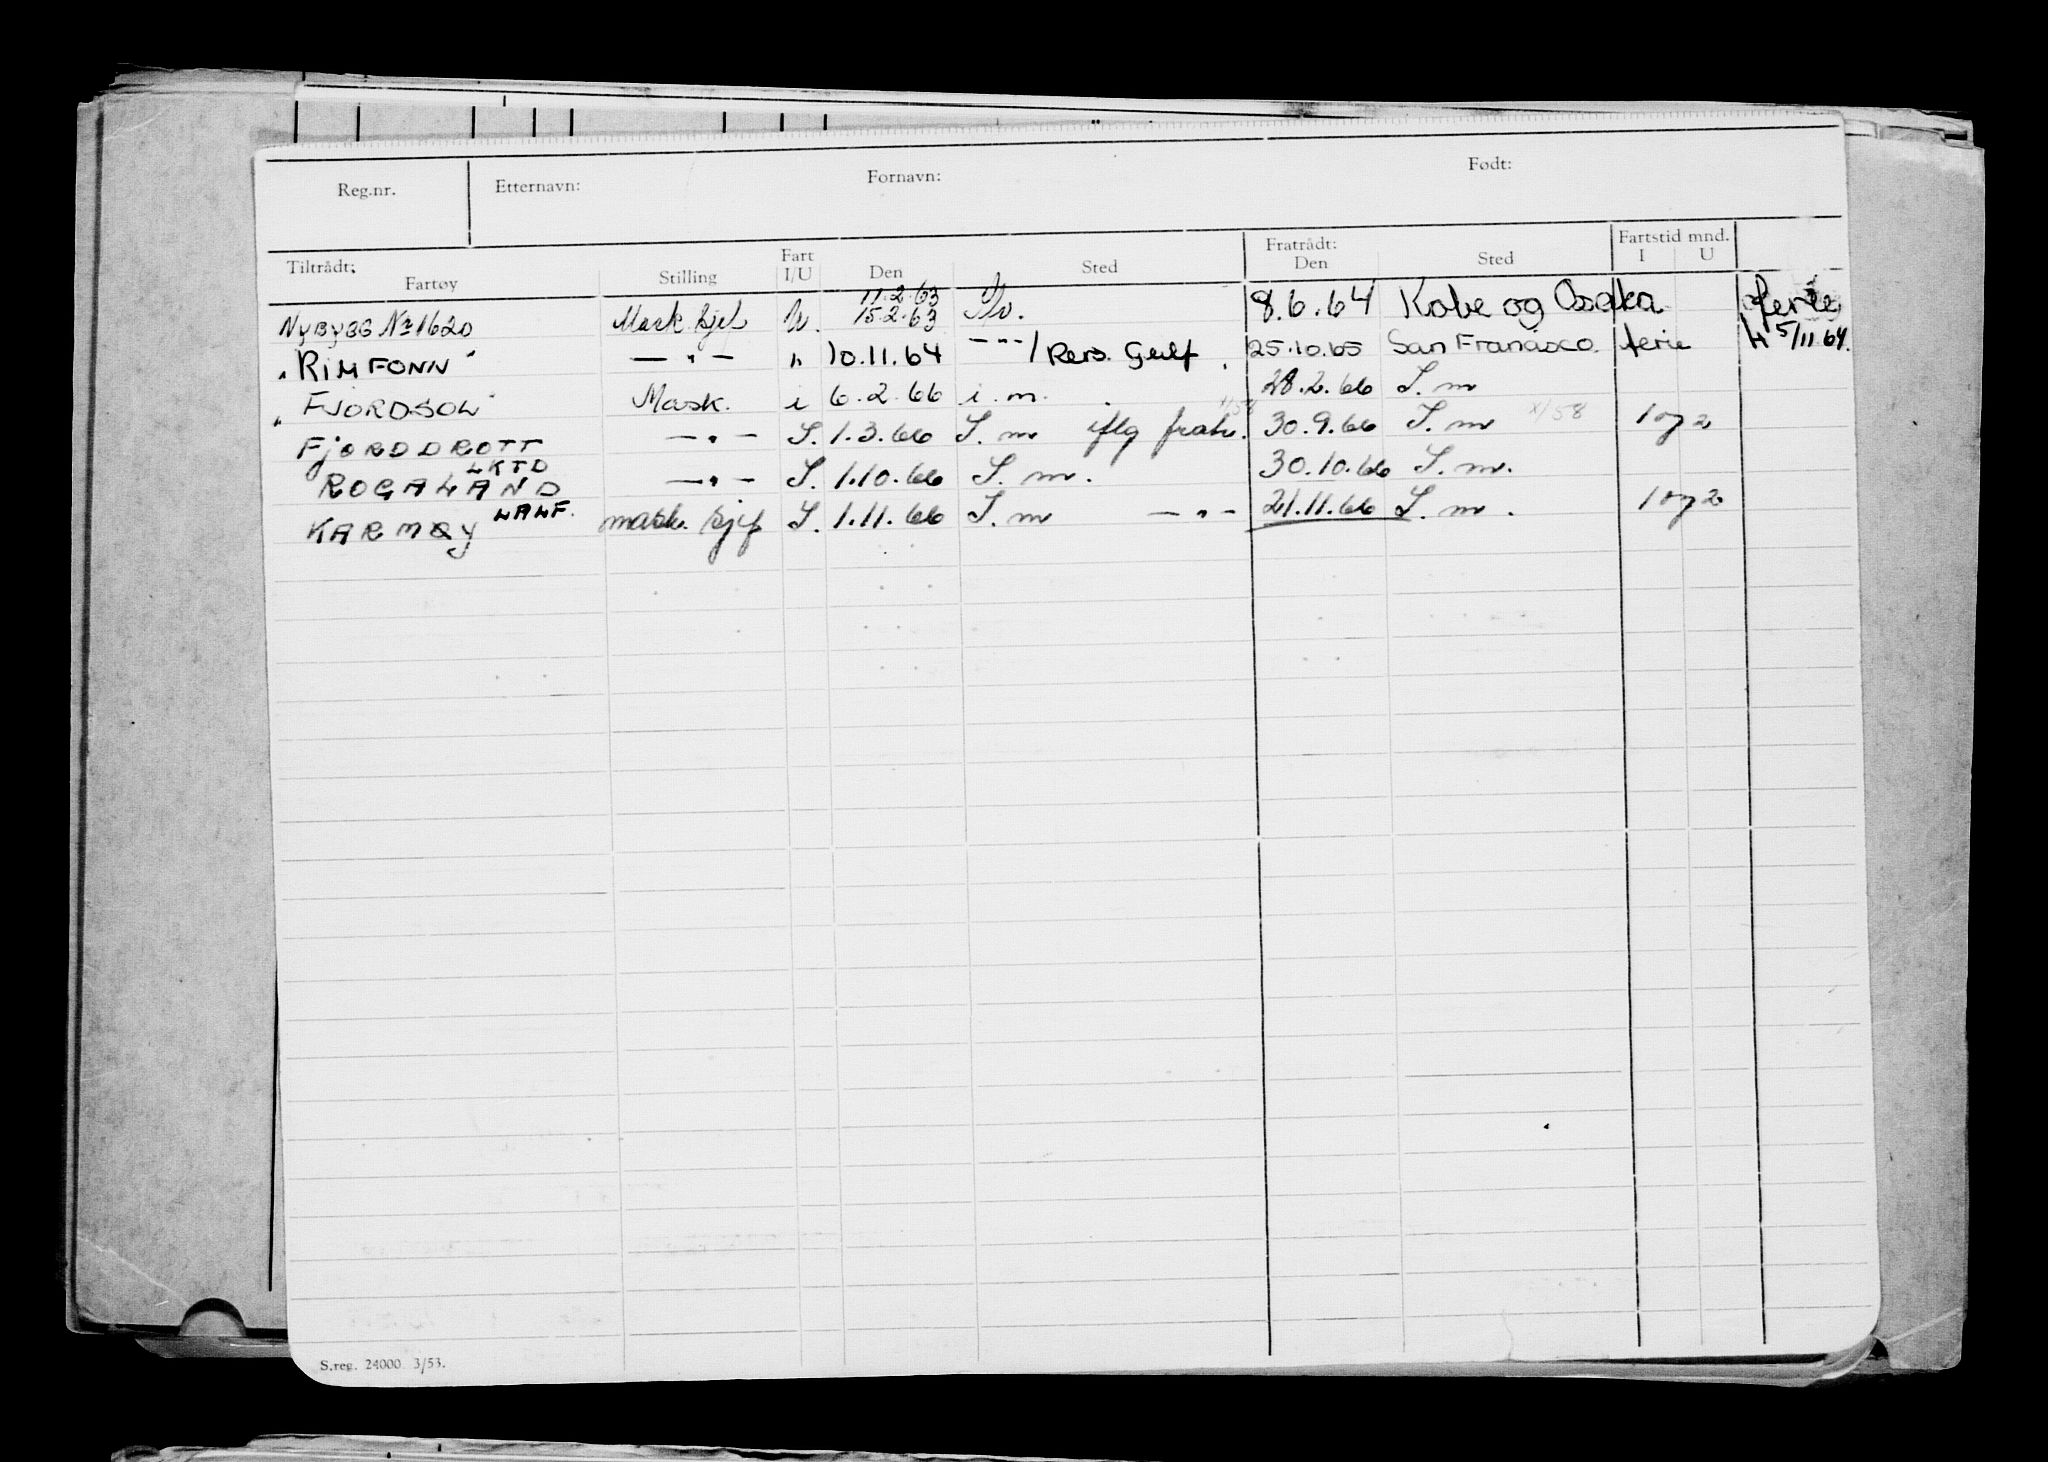 Reg.nr. Etternavn: Fornavn: Født:
Tiltrådt: Fratrådt: Fartstid mnd.
Fartøy Stilling Fart I/U Den Sted Den Sted I U
11.2.63
NYBYGG No 1620 Mask sjef U. 15.2.63 8.6.64 Kobe og Osaka ferie
"RIMFONN" — " — " 10.11.64 - " - / Pers. Gulf. 25.10.65 San Francisco. ferie 5/11 64.
"FJORDSOL" Mask. i 6.2.66 i.m. 28.2.66 S. m
FJORDDROTT — " — S. 1.3.66 S. m iflg frakt. 30.9.66 S. m X/58 1 og 2
LKTD
ROGALAND — " — S. 1.10.66 S. m. 30.10.66 S. m.
LALF.
KARMØY mask. sjef S. 1.11.66 S. m — " — 21.11.66 S. m. 1 og 2
S.reg. 24000 3/53.